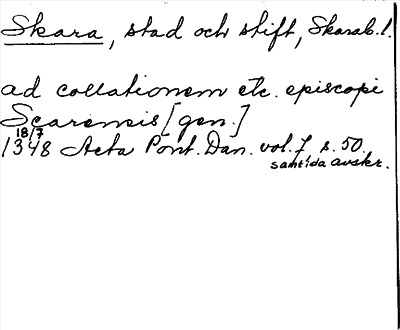 Skara, stad och stift, Skarab.l.
ad collationem etc. episcopi
Scarensis [gen.]
18/7
1348 Acta Pont. Dan. vol. 7 s. 50.
samtida avskr.